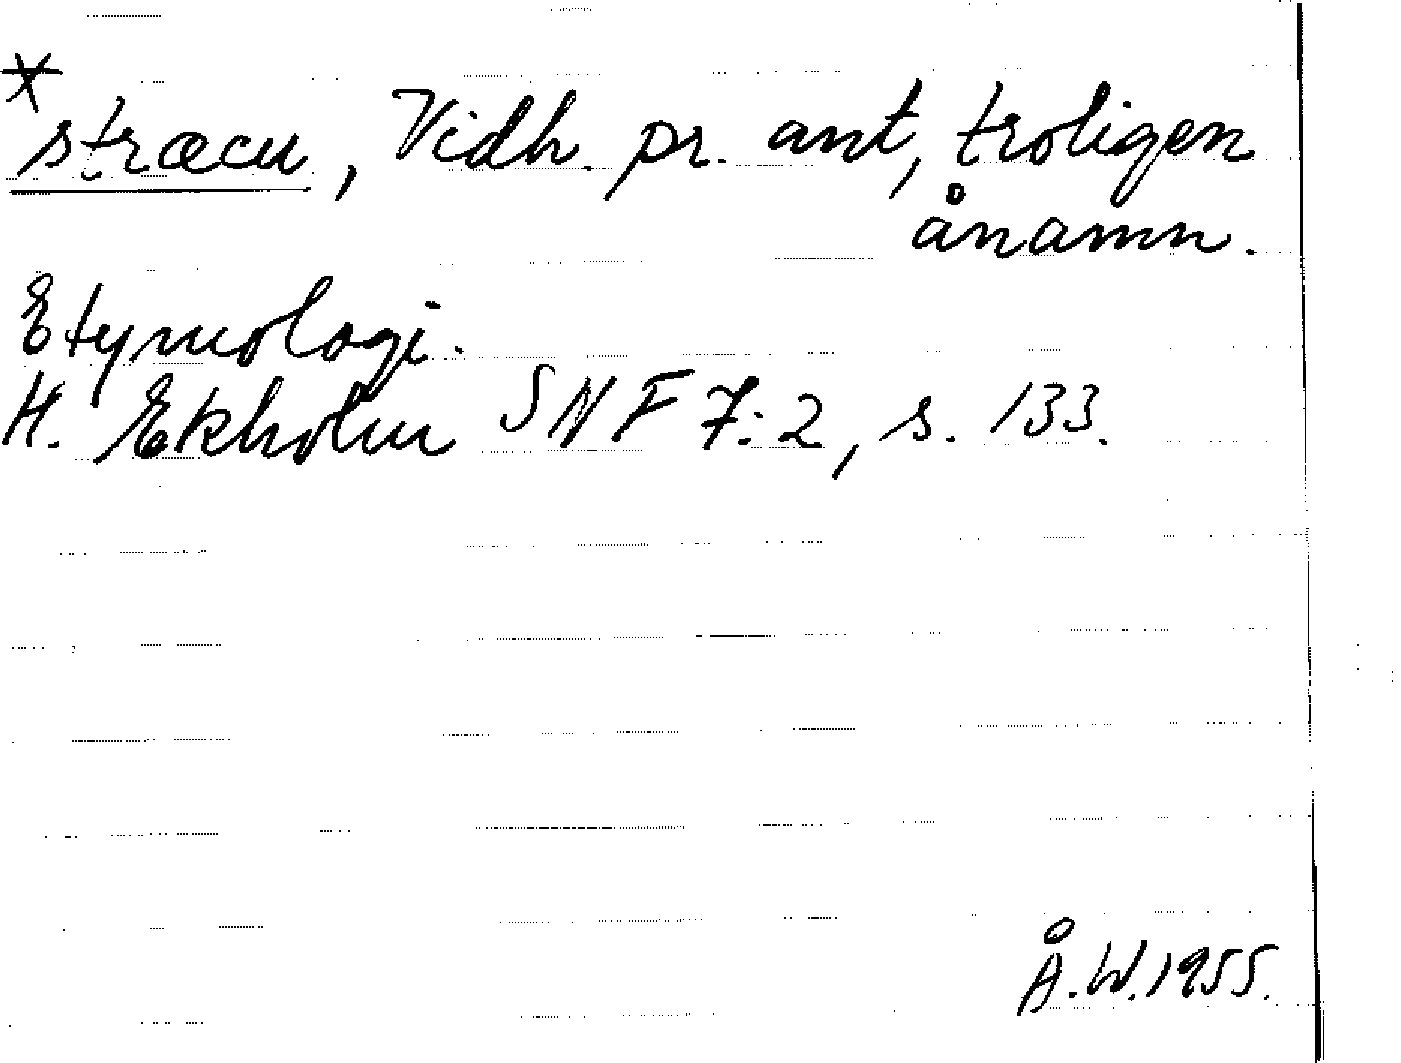 *stræcu, Vidh. pr. ant, troligen
ånamn.
Etymologi.
H. Ekholm SNF 7:2, s. 133.
Å.W.1955.